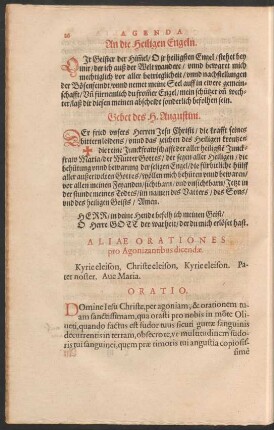 26 AGENDA
An die Heiligen Engeln.
Ir Geister der Himel/ O jr heiligsten Engel/ stehet bey
mir/ der ich auß der Welt wandere/ vnnd bewaret mich
mechtiglich vor aller betrieglicheit/ vnnd nachstellungen
der Bösen feindt/ vnnd nemet meine Seel auff in ewere gemein-
schafft/ Vñ fürnemlich du frommer Engel/ mein schützer vñ wech-
ter/ laß dir diesen meinen abscheidt sonderlich befolhen sein.
Gebet des H. Augustini.
Der fried vnsers Herren Jesu Christi/ die krafft seines
bitteren leidens/ vnnd das zeichen des Heiligen Kreutzes
✠ die rein/ Junckfrawschafft der aller heiligste Junck-
fraw Maria/ der Mutter Gottes/ der segen aller Heiligen/ die
behütung vnnd bewarung der seligen Engel/ die fürbittliche hülff
aller außerwelten Gottes/ wöllen mich schützen vnnd bewaren/
vor allen meinen Feyanden/ sichtbarn/ vnd vnsichtbarn/ Jetz in
der stunde meines Todtes/ im namen des Vatters/ des Sons/
vnd des heiligen Geists/ Amen.
HERR/ in deine Hende befelh ich meinen Geist/
O Herr GOTT der warheit/ der du mich erlöset hast.
ALIAE ORATIONES
pro Agonizantibus dicendæ.
Kyrie eleison, Christe eleison, Kyrie eleison. Pa-
ter noster. Aue Maria.
ORATIO.
Domine Iesu Christe, per agoniam, & orationem tu-
am sanctissimam, qua orasti pro nobis in mõte Oli-
ueti, quando factus est sudor tuus sicuti guttæ sanguinis
decurrentis in terram, obsecro te, vt multitudinem sudo-
ris tui sanguinei, quem præ timoris tui angustia copiosis-
simè